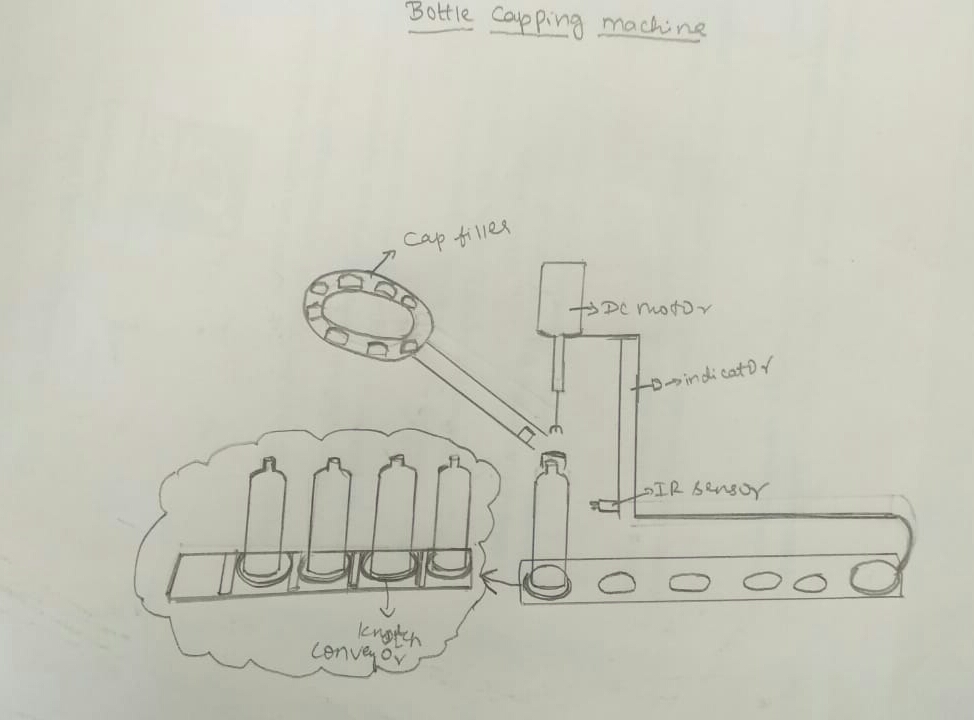 Bottle Capping machine
Cap filler
DC motor
indicator
IR sensor
conveyor